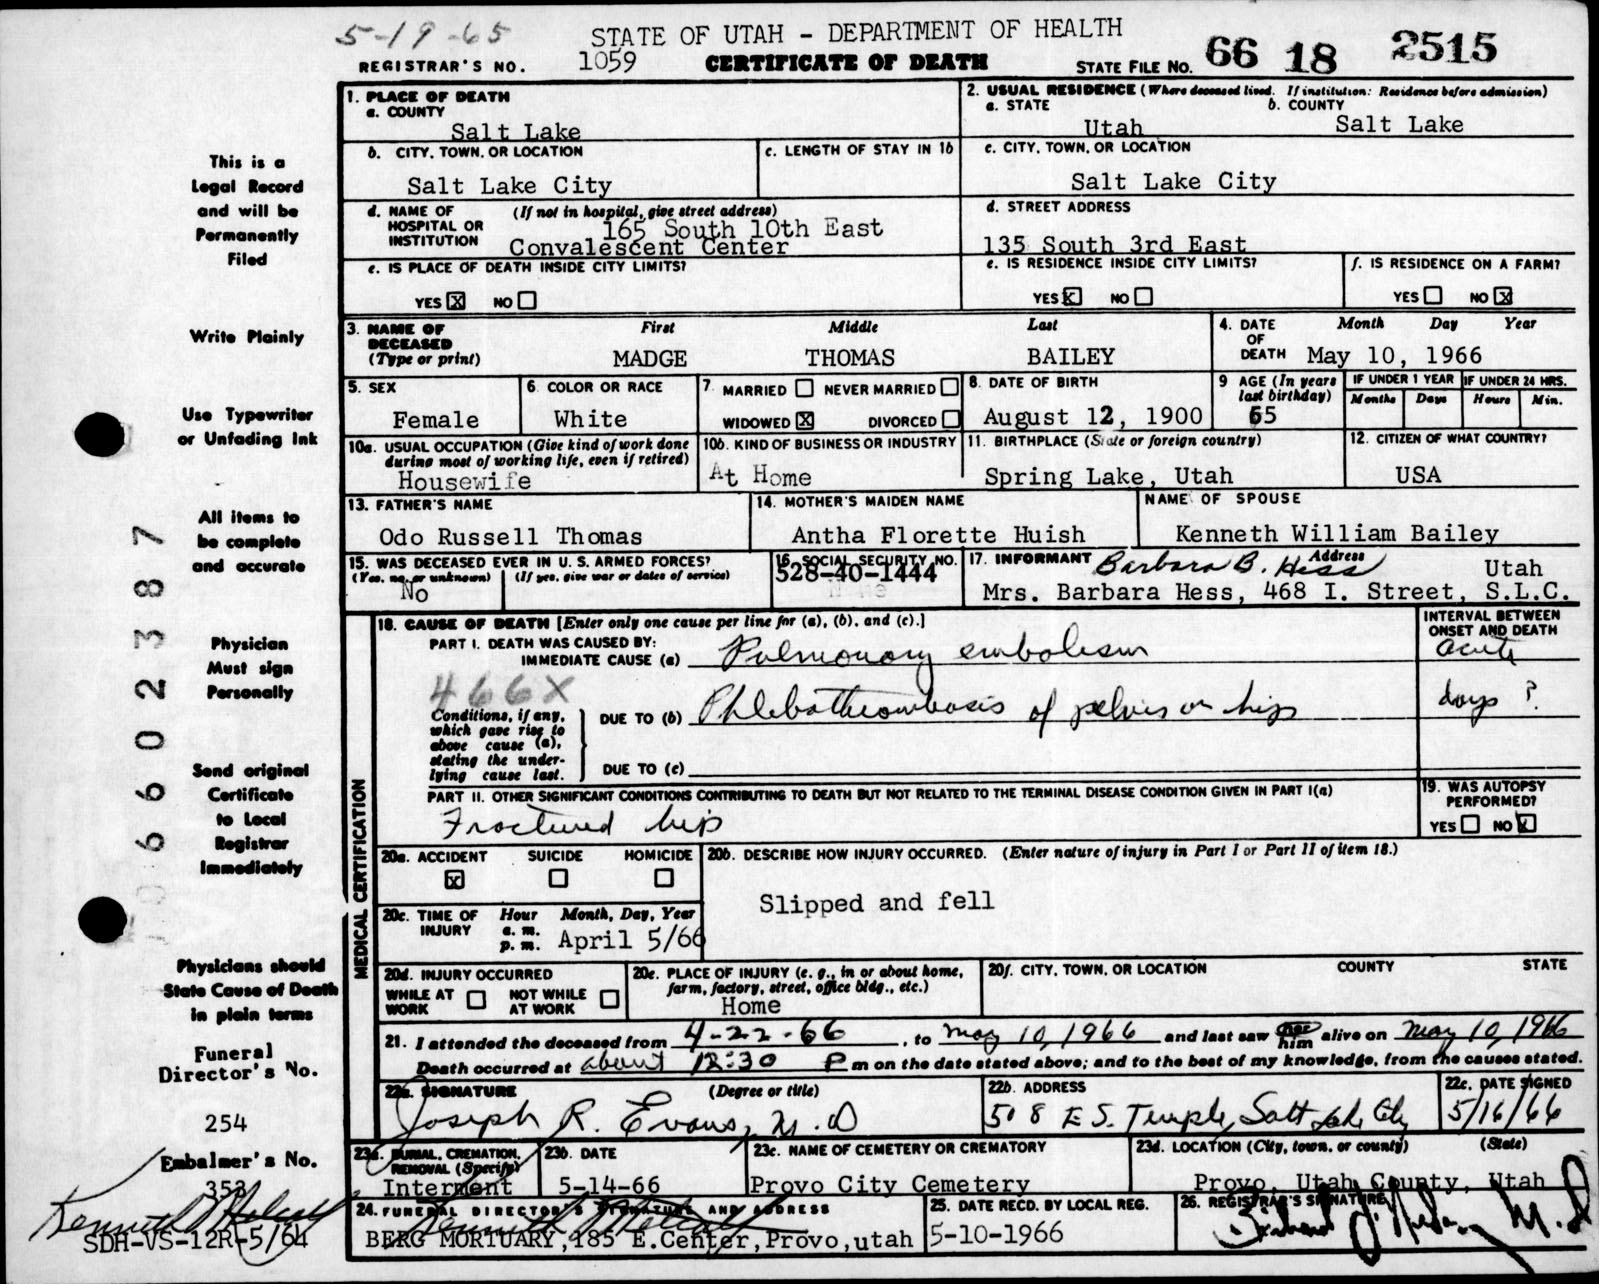 5-19-65
STATE OF UTAH - DEPARTMENT OF HEALTH
REGISTRAR'S NO. 1059 CERTIFICATE OF DEATH STATE FILE NO. 66 18 2515
1. PLACE OF DEATH
a. COUNTY
Salt Lake
2. USUAL RESIDENCE (Where deceased lived. If institution: Residence before admission)
a. STATE b. COUNTY
Utah Salt Lake
b. CITY, TOWN, OR LOCATION
Salt Lake City
c. LENGTH OF STAY IN 1b
c. CITY, TOWN, OR LOCATION
Salt Lake City
d. NAME OF HOSPITAL OR INSTITUTION (If not in hospital, give street address)
165 South 10th East
Convalescent Center
d. STREET ADDRESS
135 South 3rd East
e. IS PLACE OF DEATH INSIDE CITY LIMITS?
YES X NO
e. IS RESIDENCE INSIDE CITY LIMITS?
YES X NO
f. IS RESIDENCE ON A FARM?
YES NO X
3. NAME OF DECEASED (Type or print)
First Middle Last
MADGE THOMAS BAILEY
4. DATE OF DEATH Month Day Year
May 10, 1966
5. SEX
Female
6. COLOR OR RACE
White
7. MARRIED NEVER MARRIED
WIDOWED X DIVORCED
8. DATE OF BIRTH
August 12, 1900
9 AGE (In years last birthday)
65
IF UNDER 1 YEAR IF UNDER 24 HRS.
Months Days Hours Min.
10a. USUAL OCCUPATION (Give kind of work done during most of working life, even if retired)
Housewife
10b. KIND OF BUSINESS OR INDUSTRY
At Home
11. BIRTHPLACE (State or foreign country)
Spring Lake, Utah
12. CITIZEN OF WHAT COUNTRY?
USA
13. FATHER'S NAME
Odo Russell Thomas
14. MOTHER'S MAIDEN NAME
Antha Florette Huish
NAME OF SPOUSE
Kenneth William Bailey
15. WAS DECEASED EVER IN U. S. ARMED FORCES?
(Yes, no, or unknown) (If yes, give war or dates of service)
No
16. SOCIAL SECURITY NO.
528-40-1444
17. INFORMANT Address
Barbara B. Hess
Mrs. Barbara Hess, 468 I. Street, S.L.C. Utah
MEDICAL CERTIFICATION
18. CAUSE OF DEATH [Enter only one cause per line for (a), (b), and (c).]
INTERVAL BETWEEN ONSET AND DEATH
PART I. DEATH WAS CAUSED BY:
IMMEDIATE CAUSE (a) Pulmonary embolism acute
466X
Conditions, if any, which gave rise to above cause (a), stating the underlying cause last.
DUE TO (b) Phlebothrombosis of pelvis or hip days ?
DUE TO (c)
PART II. OTHER SIGNIFICANT CONDITIONS CONTRIBUTING TO DEATH BUT NOT RELATED TO THE TERMINAL DISEASE CONDITION GIVEN IN PART I(a)
Fractured hip
19. WAS AUTOPSY PERFORMED?
YES NO X
20a. ACCIDENT SUICIDE HOMICIDE
X
20b. DESCRIBE HOW INJURY OCCURRED. (Enter nature of injury in Part I or Part II of item 18.)
Slipped and fell
20c. TIME OF INJURY Hour Month, Day, Year
a. m.
p. m. April 5/66
20d. INJURY OCCURRED
WHILE AT WORK NOT WHILE AT WORK
20e. PLACE OF INJURY (e. g., in or about home, farm, factory, street, office bldg., etc.)
Home
20f. CITY, TOWN, OR LOCATION COUNTY STATE
21. I attended the deceased from 4-22-66, to May 10, 1966 and last saw her him alive on May 10, 1966
Death occurred at about 12:30 P m on the date stated above; and to the best of my knowledge, from the causes stated.
22a. SIGNATURE (Degree or title)
Joseph R. Evans, M.D
22b. ADDRESS
508 E S. Temple, Salt Lake City
22c. DATE SIGNED
5/16/66
23a. BURIAL, CREMATION, REMOVAL (Specify)
Interment
23b. DATE
5-14-66
23c. NAME OF CEMETERY OR CREMATORY
Provo City Cemetery
23d. LOCATION (City, town, or county) (State)
Provo, Utah County, Utah
24. FUNERAL DIRECTOR'S SIGNATURE AND ADDRESS
BERG MORTUARY, 185 E.Center, Provo, utah
25. DATE RECD. BY LOCAL REG.
5-10-1966
26. REGISTRAR'S SIGNATURE
This is a
Legal Record
and will be
Permanently
Filed
Write Plainly
Use Typewriter
or Unfading Ink
All items to
be complete
and accurate
Physician
Must sign
Personally
Send original
Certificate
to Local
Registrar
Immediately
Physicians should
State Cause of Death
in plain terms
Funeral
Director's No.
254
Embalmer's No.
353
SDH-VS-12R-5/64
06602387